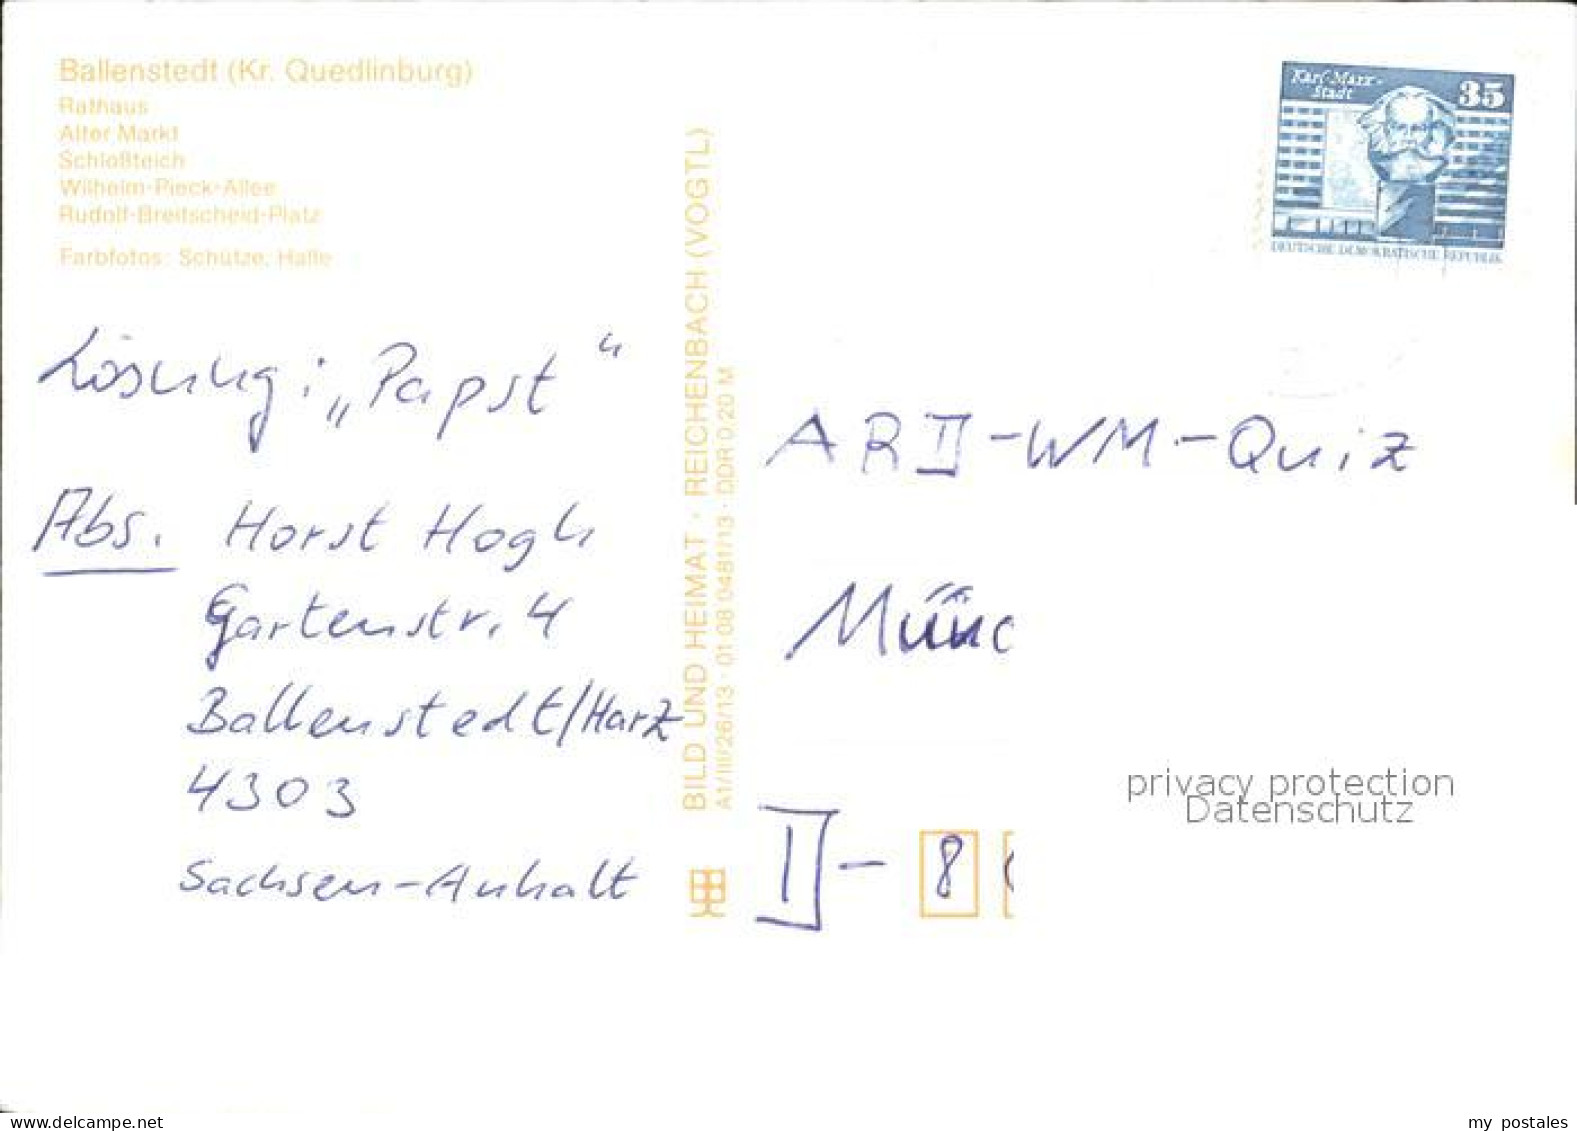 Ballenstedt (Kr. Quedlinburg)
Rathaus
Alter Markt
Schloßteich
Wilhelm-Pieck-Allee
Rudolf-Breitscheid-Platz
Farbfotos: Schütze, Halle
Lösung: „Papst“
Abs. Horst Hogh
Gartenstr. 4
Ballenstedt/Harz
4303
Sachsen-Anhalt
BILD UND HEIMAT · REICHENBACH (VOGTL)
A1/III/26/13 · 01 08 0481/13 · DDR 0,20 M
Karl-Marx-
Stadt
35
DEUTSCHE DEMOKRATISCHE REPUBLIK
ARD-WM-Quiz
Münc
D-8
privacy protection
Datenschutz
www.delcampe.net
my postales